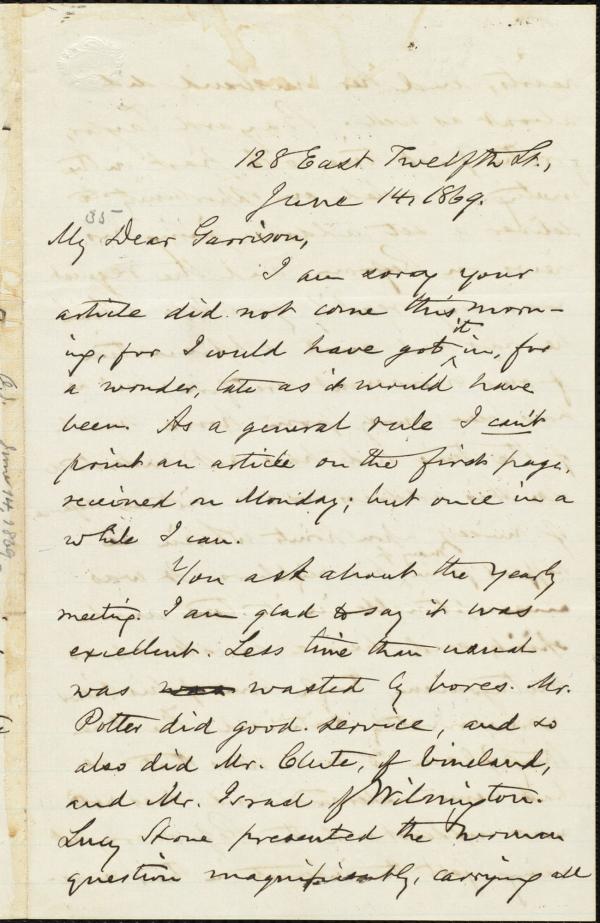 128 East Twelfth St.,
June 14, 1869.
35
My Dear Garrison,
I am sorry your
article did not come this morn-
ing, for I would have got it in, for
a wonder, late as it would have
been. As a general rule I can't
print an article on the first page,
received on Monday; but once in a
while I can.
You ask about the Yearly
meeting. I am glad to say it was
excellent. Less time than usual
was was wasted by bores. Mr.
Potter did good service, and so
also did Mr. Clute, of Vineland,
and Mr. Israel of Wilmington.
Lucy Stone presented the woman
question magnificently, carrying all
June 14, 1869.